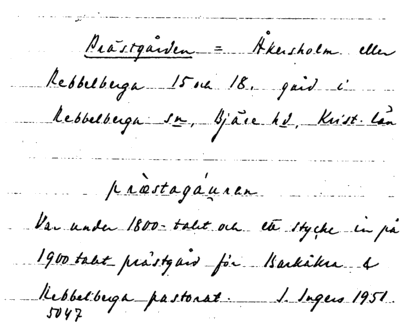 Prästgården = Åkersholm eller
Rebbelberga 15 och 18, gård i
Rebbelberga sn, Bjäre hd, Krist. län
præstagáuren
Var under 1800-talet och ett stycke in på
1900 talet prästgård för Barkåkra &
Rebbelberga pastorat. I. Ingers 1951.
5047